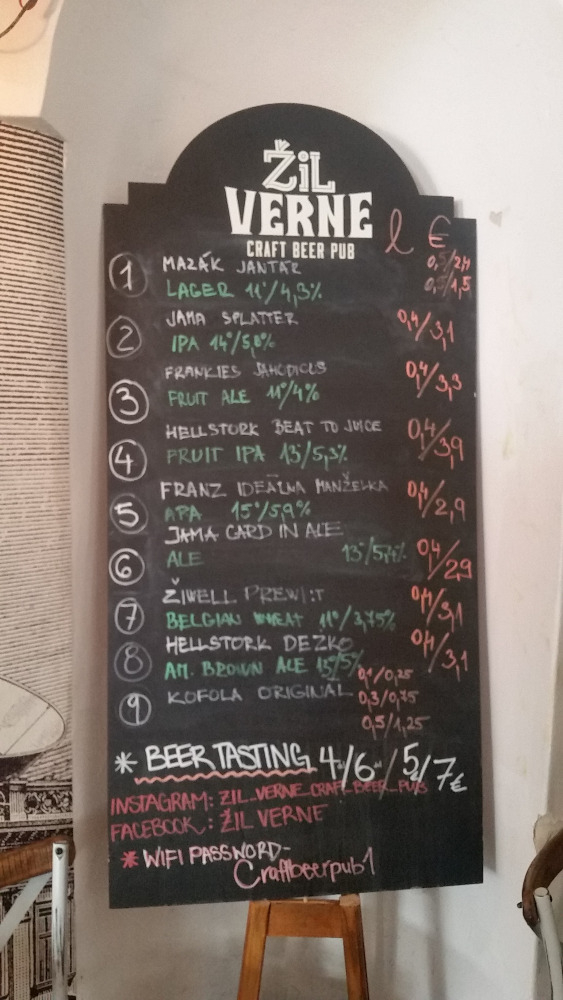 ŽiL
VERNE
CRAFT BEER PUB
l €
1 MAZÁK JANTÁR 0,5/2,4
LAGER 11°/4,3% 1,5
2 JAMA SPLATTER 0,4/3,1
IPA 14°/5,8%
FRANKIES JAHODICLS 0,4/3,3
3 FRUIT ALE 11°/4%
HELLSTORK BEAT TO JUICE 0,4/3,9
4 FRUIT IPA 13°/5,3%
FRANZ IDEÁLNA MANŽELKA 0,4/2,9
5 APA 15°/5,9%
JAMA CARD IN ALE
6 ALE 13°/ 0,4/2,9
ŽIWELL 0,4/3,1
7 BELGIAN WHEAT 11°/3,75%
HELLSTORK DEZKO 0,4/3,1
8 AM. BROWN ALE 13°/5%
0,1/0,25
9 KOFOLA ORIGINAL 0,3/0,75
0,5/1,25
* BEER TASTING 4/6 / 5/7€
INSTAGRAM: ZIL_VERNE_CRAFT_BEER_PUB
FACEBOOK: ŽIL VERNE
* WIFI PASSWORD-
Craftbeerpub1